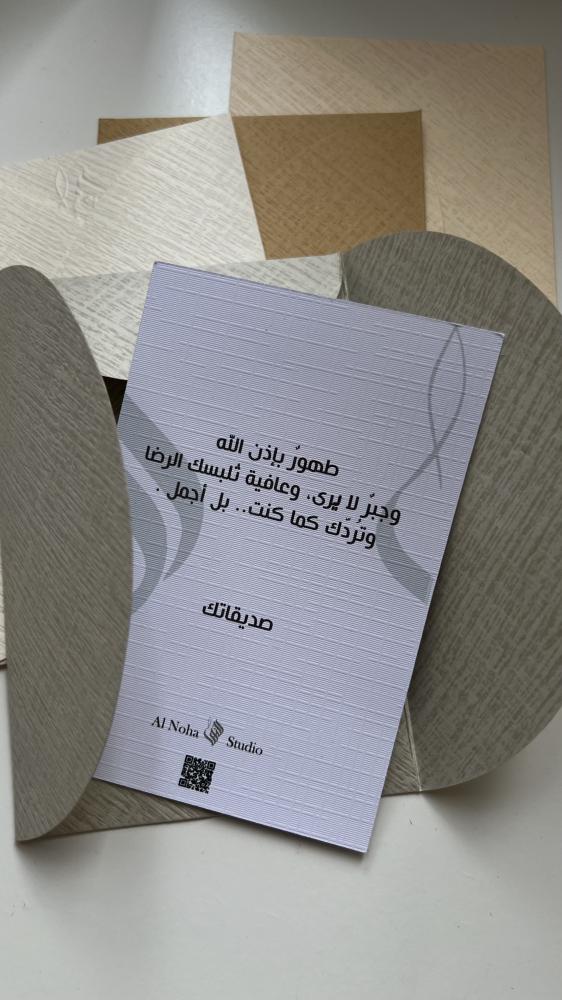 طهورٌ بإذن الله
وجبرٌ لا يرى، وعافية تُلبسك الرضا
وتُردّك كما كنت.. بل أجمل .
صديقاتك
Al Noha Studio